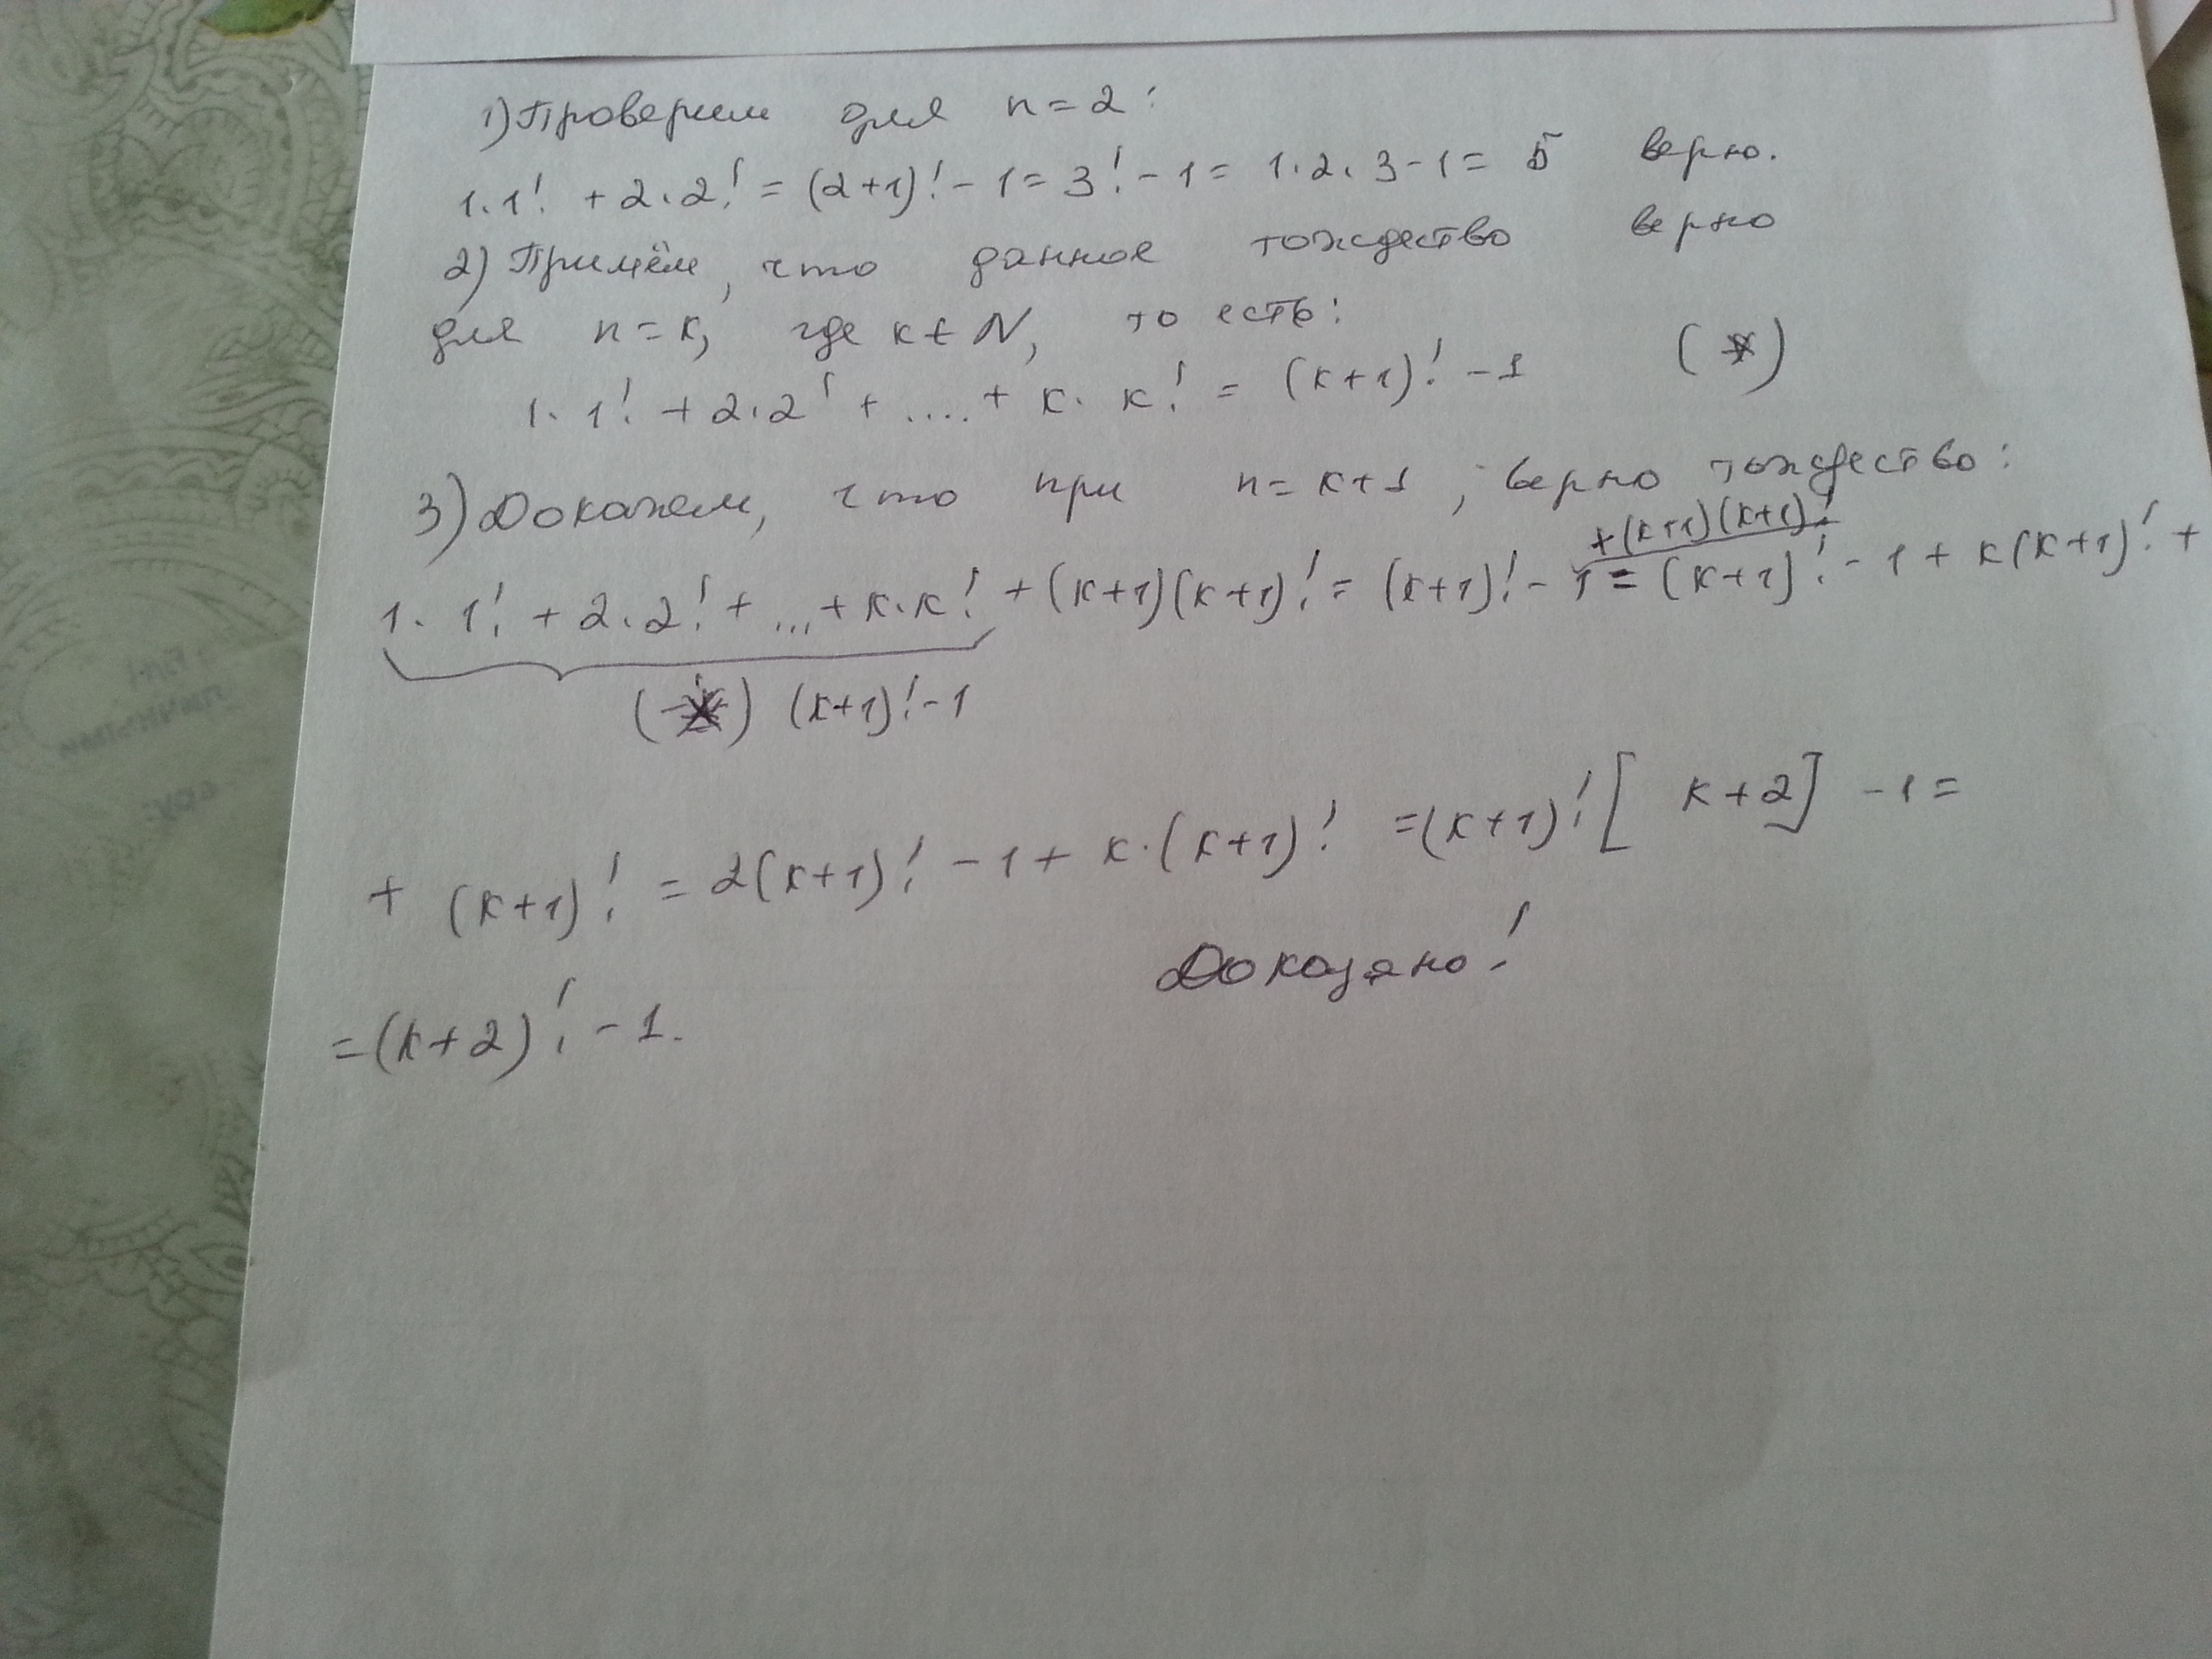 1) Проверим для n = 2:
1·1! + 2·2! = (2+1)! - 1 = 3! - 1 = 1·2·3 - 1 = 5 верно.
2) Примём, что данное тождество верно
для n = k, где k ∈ N, то есть:
1·1! + 2·2! + .... + k·k! = (k+1)! - 1 (*)
3) Докажем, что при n = k+1, верно тождество:
+(k+1)(k+1)!
1·1! + 2·2! + ... + k·k! + (k+1)(k+1)! = (k+1)! - 1 = (k+1)! - 1 + k(k+1)! +
(*) (k+1)! - 1
+ (k+1)! = 2(k+1)! - 1 + k·(k+1)! = (k+1)! [k+2] - 1 =
= (k+2)! - 1.
Доказано!